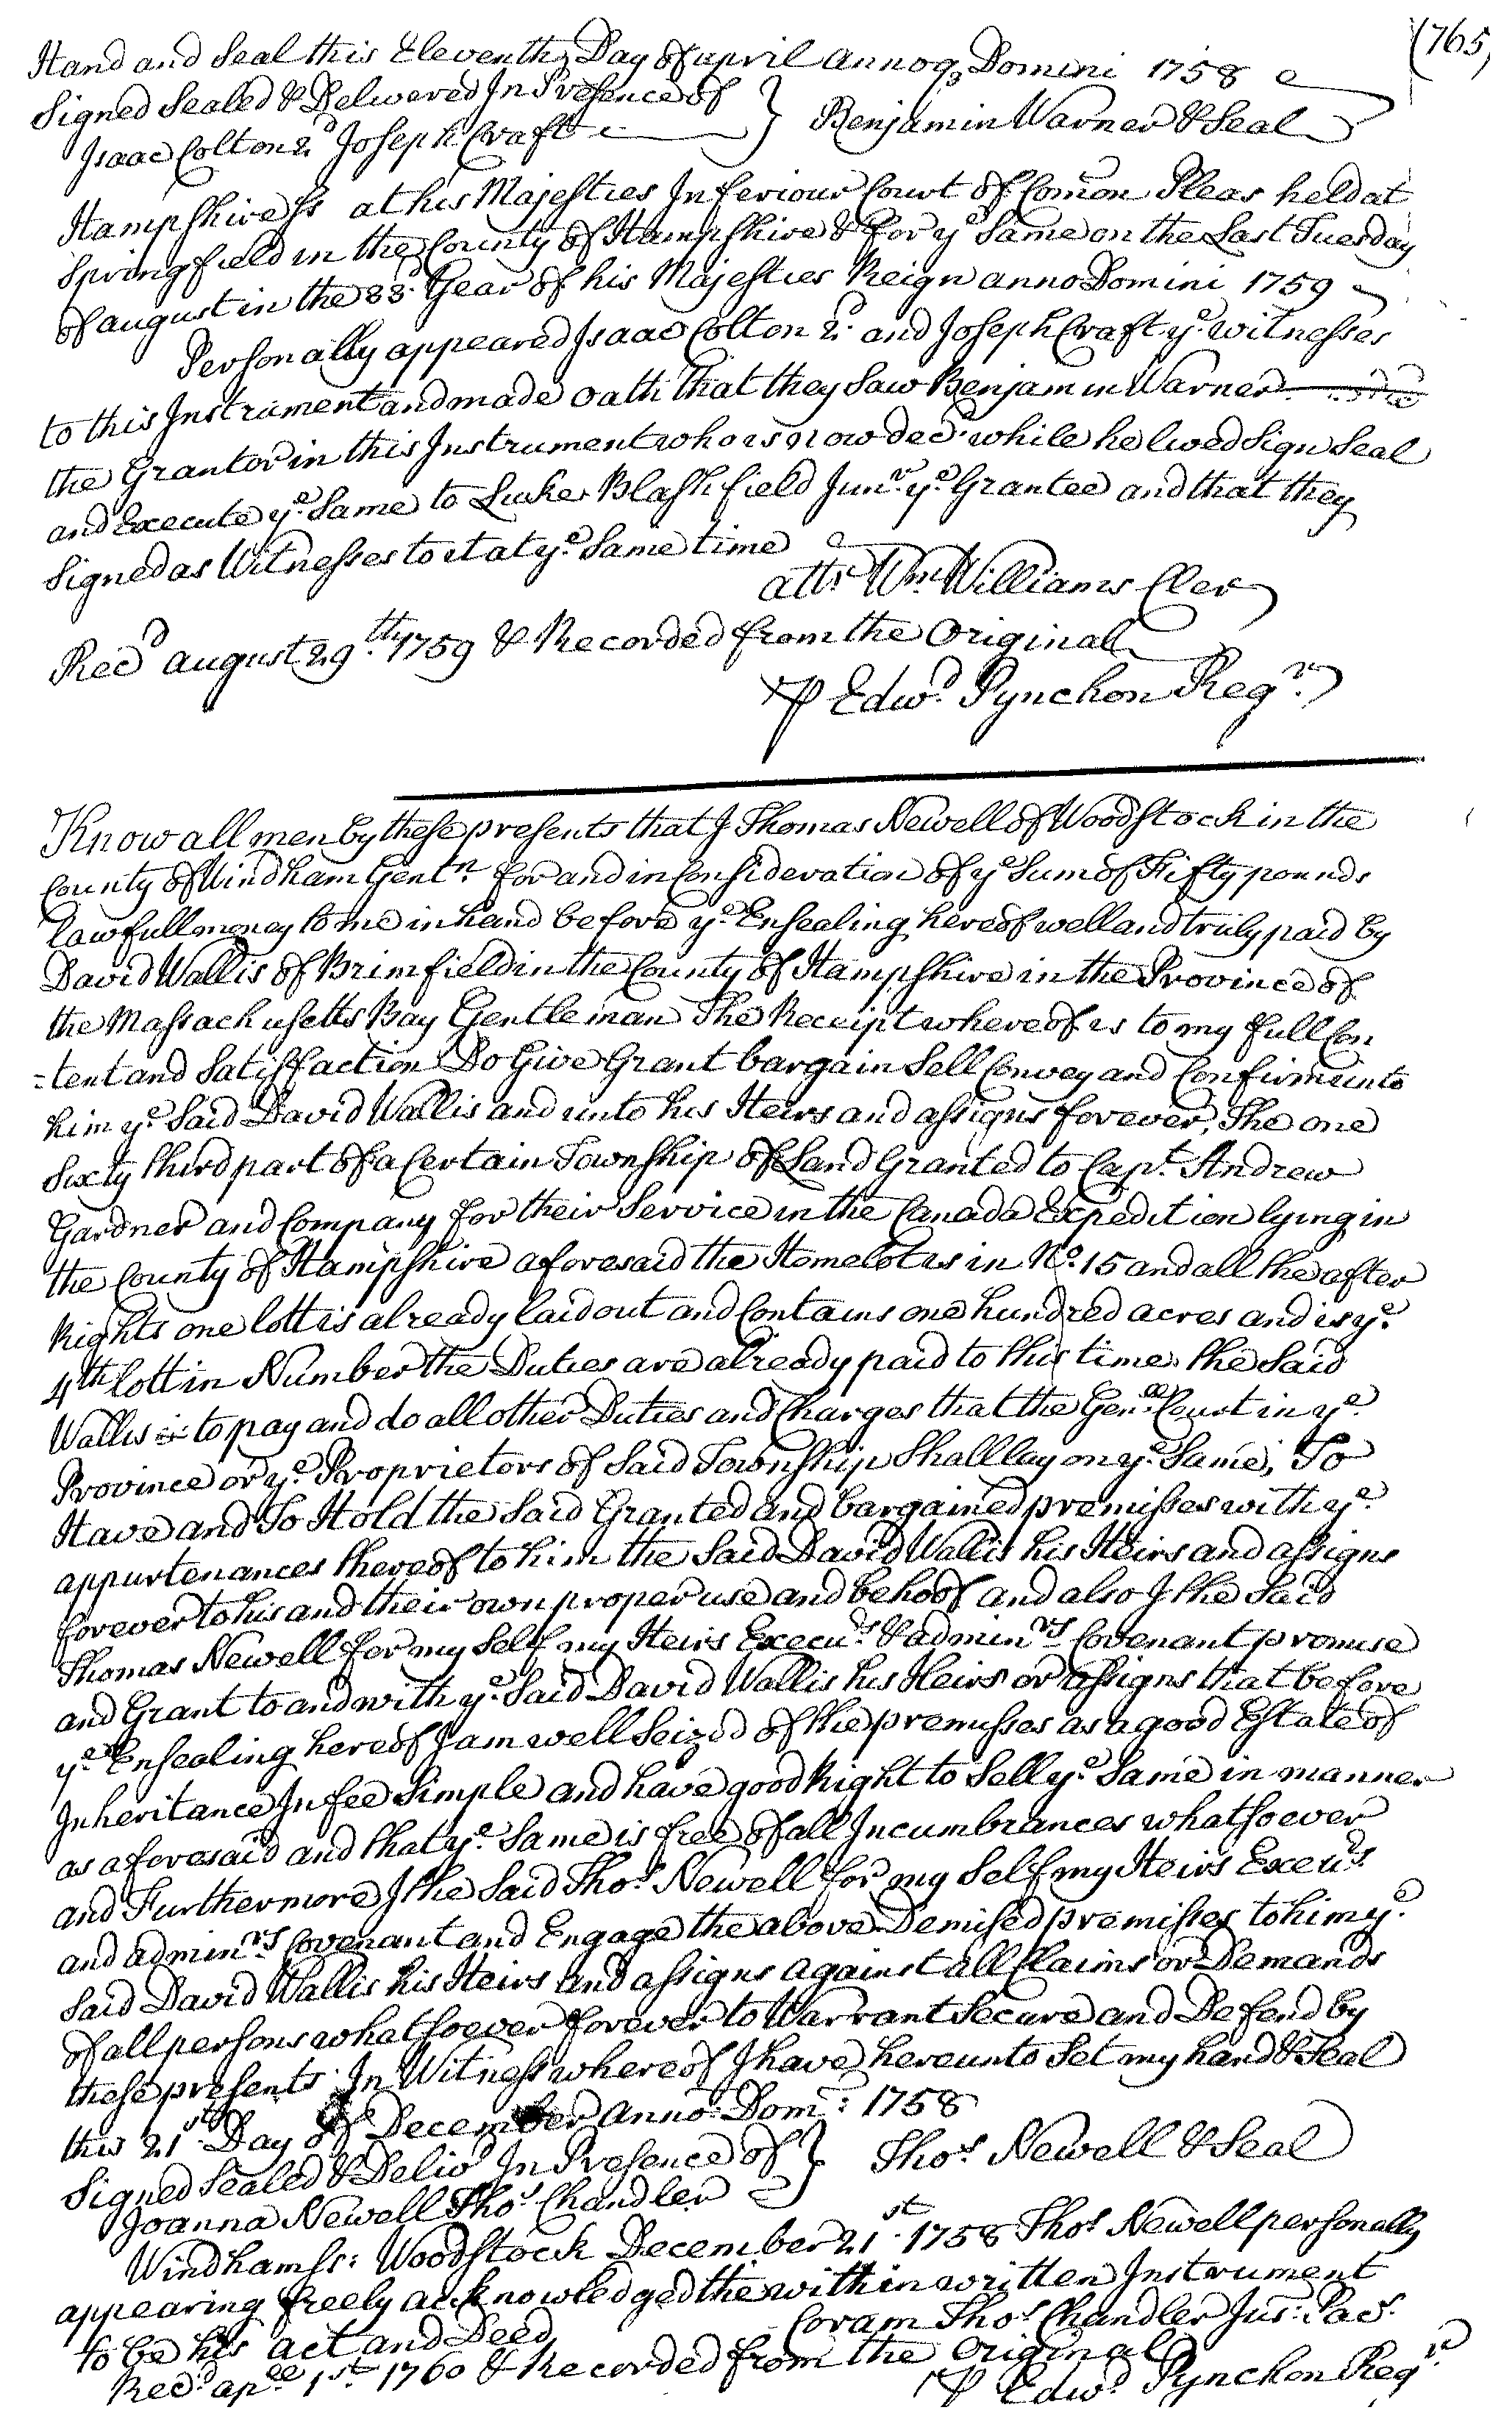 (765)
Hand and Seal this Eleventh Day of april annoq Domini 1758
Signed Sealed & Delivered In Presence of } Benjamin Warner & Seal
Isaac Colton 2d Joseph Craft
Hampshire ss at his Majesties Inferiour Court of Comon Pleas held at
Springfield in the County of Hampshire & for ye Same on the Last Tuesday
of august in the 33d Year of his Majesties Reign anno Domini 1759
Personally appeared Isaac Colton 2d and Joseph Craft ye witnesses
to this Instrument and made oath that they Saw Benjamin Warner
the Grantor in this Instrument who is now decd while he lived Sign Seal
and Execute ye Same to Luke Blashfield Junr ye Grantee and that they
Signed as Witnesses to it at ye Same time
attr Wm Williams Cler
Recd august 29th 1759 & Recorded from the Original
P Edwd Pynchon Regr
Know all men by these presents that I Thomas Newell of Woodstock in the
County of Windham Gentn for and in Consideration of ye Sum of Fifty pounds
lawfull money to me in hand before ye Ensealing hereof well and truly paid by
David Wallis of Brimfield in the County of Hampshire in the Province of
the Massachusetts Bay Gentleman The Receipt whereof is to my full Con
=tent and Satisfaction Do Give Grant bargain Sell Convey and Confirm unto
him ye Said David Wallis and unto his Heirs and assigns forever, The one
Sixty third part of a Certain Township of Land Granted to Capt. Andrew
Gardner and Company for their Service in the Canada Expedition lying in
the County of Hampshire aforesaid the Home lot is in No. 15 and all the after
Rights one lott is already laid out and Contains one hundred acres and is ye
4th lott in Number the Duties are already paid to this time the Said
Wallis is to pay and do all other Duties and Charges that the Genll Court in ye
Province or ye Proprietors of Said Township Shall lay on ye Same; To
Have and To Hold the Said Granted and bargained premisses with ye
appurtenances thereof to him the Said David Wallis his Heirs and assigns
forever to his and their own proper use and behoof and also I the Said
Thomas Newell for my Self my Heirs Execurs & adminrs Covenant promise
and Grant to and with ye Said David Wallis his Heirs or assigns that before
ye Ensealing hereof I am well Seizd of the premisses as a good Estate of
Inheritance In fee Simple and have good Right to Sell ye Same in manner
as aforesaid and that ye Same is free of all Incumbrances whatsoever
and Furthermore I the Said Thos Newell for my Self my Heirs Execurs
and adminrs Covenant and Engage the above Demised premisses to him ye
Said David Wallis his Heirs and assigns against all Claims or Demands
of all persons whatsoever forever to Warrant Secure and Defend by
these presents In Witness whereof I have hereunto Set my hand & Seal
this 21st Day of December anno Dom: 1758
Signed Sealed & Delivd In Presence of } Thos Newell & Seal
Joanna Newell Thos Chandler
Windham ss: Woodstock December 21st 1758 Thos Newell personally
appearing freely acknowledged the within written Instrument
to be his act and Deed Coram Thos Chandler Jus: Pacs
Recd apll 1st 1760 & Recorded from the Original
P Edwd Pynchon Regr